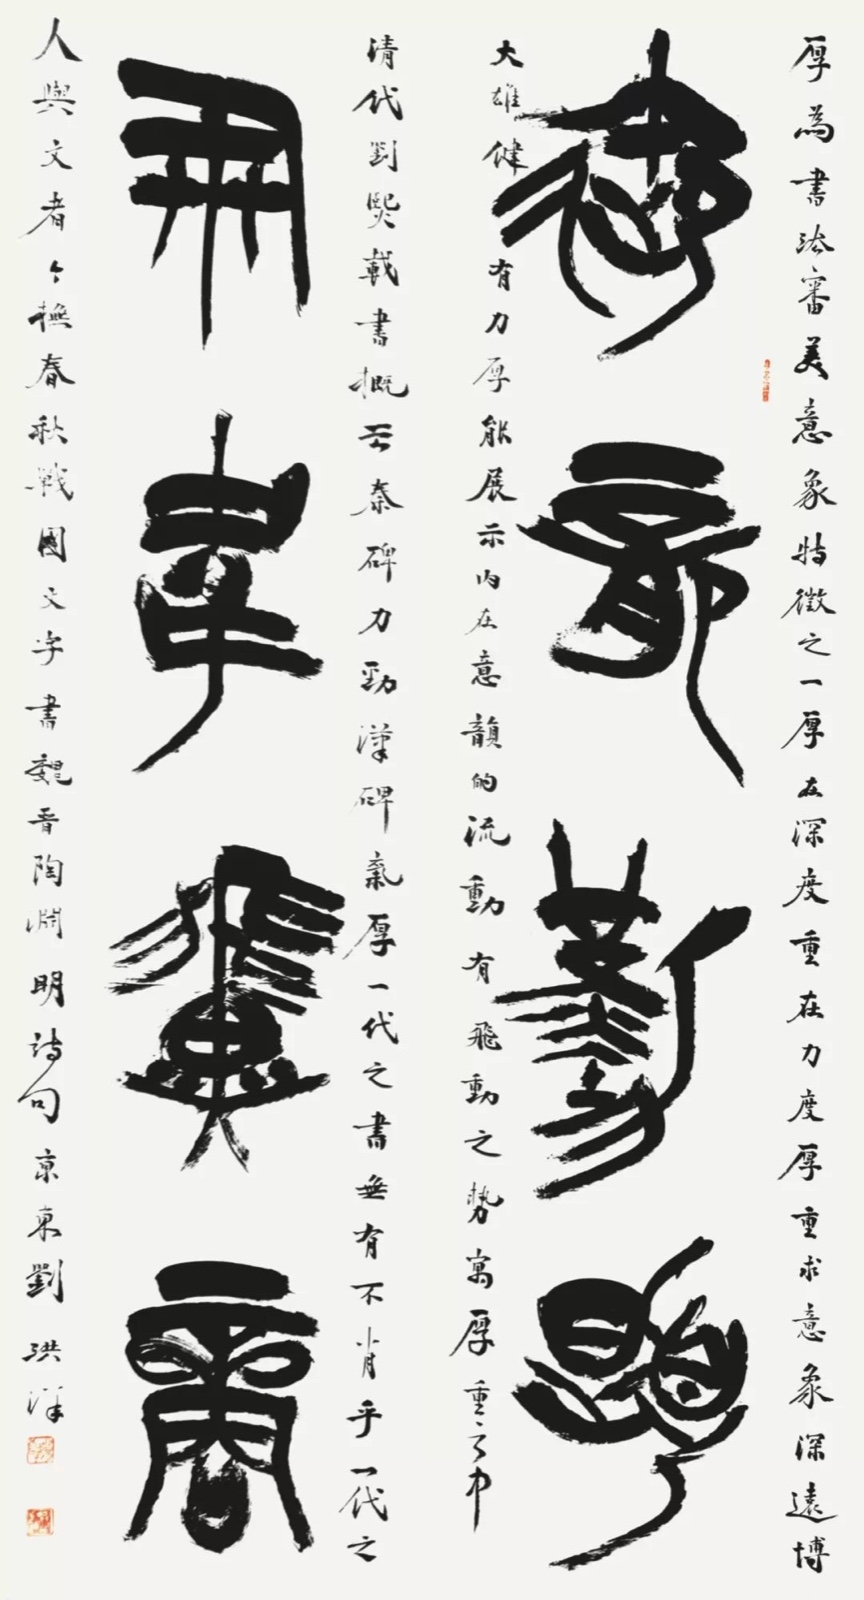 厚為書法審美意象特徵之一厚在深度重在力度厚重求意象深遠博
御龍勤夏
大雄健有力厚能展示內在意韻的流動有飛動之勢寓厚重之中
清代劉熙載書概云秦碑力勁漢碑氣厚一代之書無有不肖乎一代之
豕韋翼商
人與文者今撫春秋戰國文字書魏晉陶淵明詩句京東劉洪洋